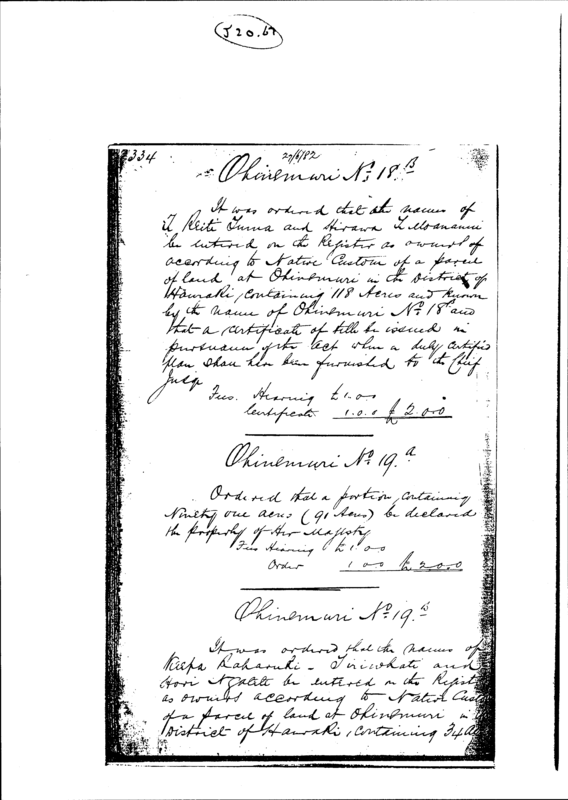 J 20.67
334
27/6/82
Ohinemuri No. 18 B
It was ordered that the names of
Te Reiti Tuma and Hirawa Te Moananui
be entered on the Register as owners of
according to Native Custom of a parcel
of land at Ohinemuri in the District of
Hauraki, containing 118 Acres and known
by the name of Ohinemuri No. 18 B and
that a certificate of title be issued in
pursuance of the Act when a duly certified
plan shall have been furnished to the Chief
Judge
Fees. Hearing £1.0.0
Certificate 1.0.0 £2.0.0
Ohinemuri No. 19. a
Ordered that a portion, containing
Ninety one acres (91 Acres) be declared
the property of Her Majesty
Fees Hearing £1.0.0
Order 1 0 0 £2.0.0
Ohinemuri No. 19. B
It was ordered that the names of
Keepa Raharuhi - Tiriwhati and
Hori Ngatete be entered on the Regist
as owners according to Native Cust
of a parcel of land at Ohinemuri in
District of Hauraki, containing 34 A